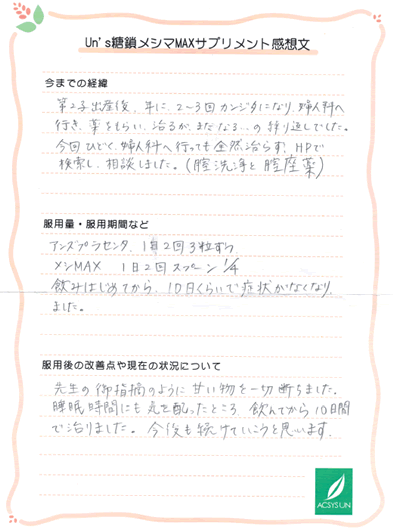 Un's糖鎖メシマMAXサプリメント感想文
今までの経緯
第2子出産後、年に、2~3回カンジタになり、婦人科へ
行き、薬をもらい、治るが、またなる…の繰り返しでした。
今回ひどく、婦人科へ行っても全然治らず、HPで
検索し、相談しました。(腟洗浄と腟座薬)
服用量・服用期間など
アンズプラセンタ、1日2回3粒ずつ
メシMAX 1日2回スプーン1/4
飲みはじめてから、10日くらいで症状がなくなり
ました。
服用後の改善点や現在の状況について
先生の御指摘のように甘い物を一切断ちました。
睡眠時間にも気を配ったところ、飲んでから10日間
で治りました。今後も続けていこうと思います。
ACSYSUN